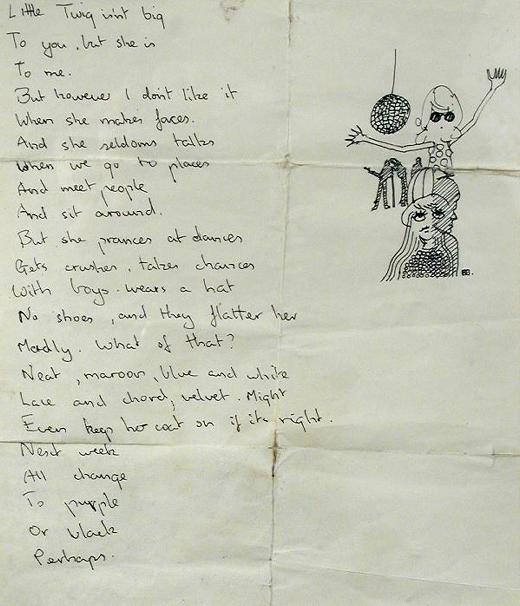 Little Twig isn't big
To you, but she is
To me.
But however I don't like it
When she makes faces.
And she seldoms talks
When we go to places
And meet people
And sit around.
But she prances at dances
Gets crushes, takes chances
With boys. wears a hat
No shoes, and they flatter her
Madly. What of that?
Neat, maroon, blue and white
Lace and chord, velvet. Might
Even keep her coat on if its right.
Next week
All change
To purple
Or black
Perhaps.